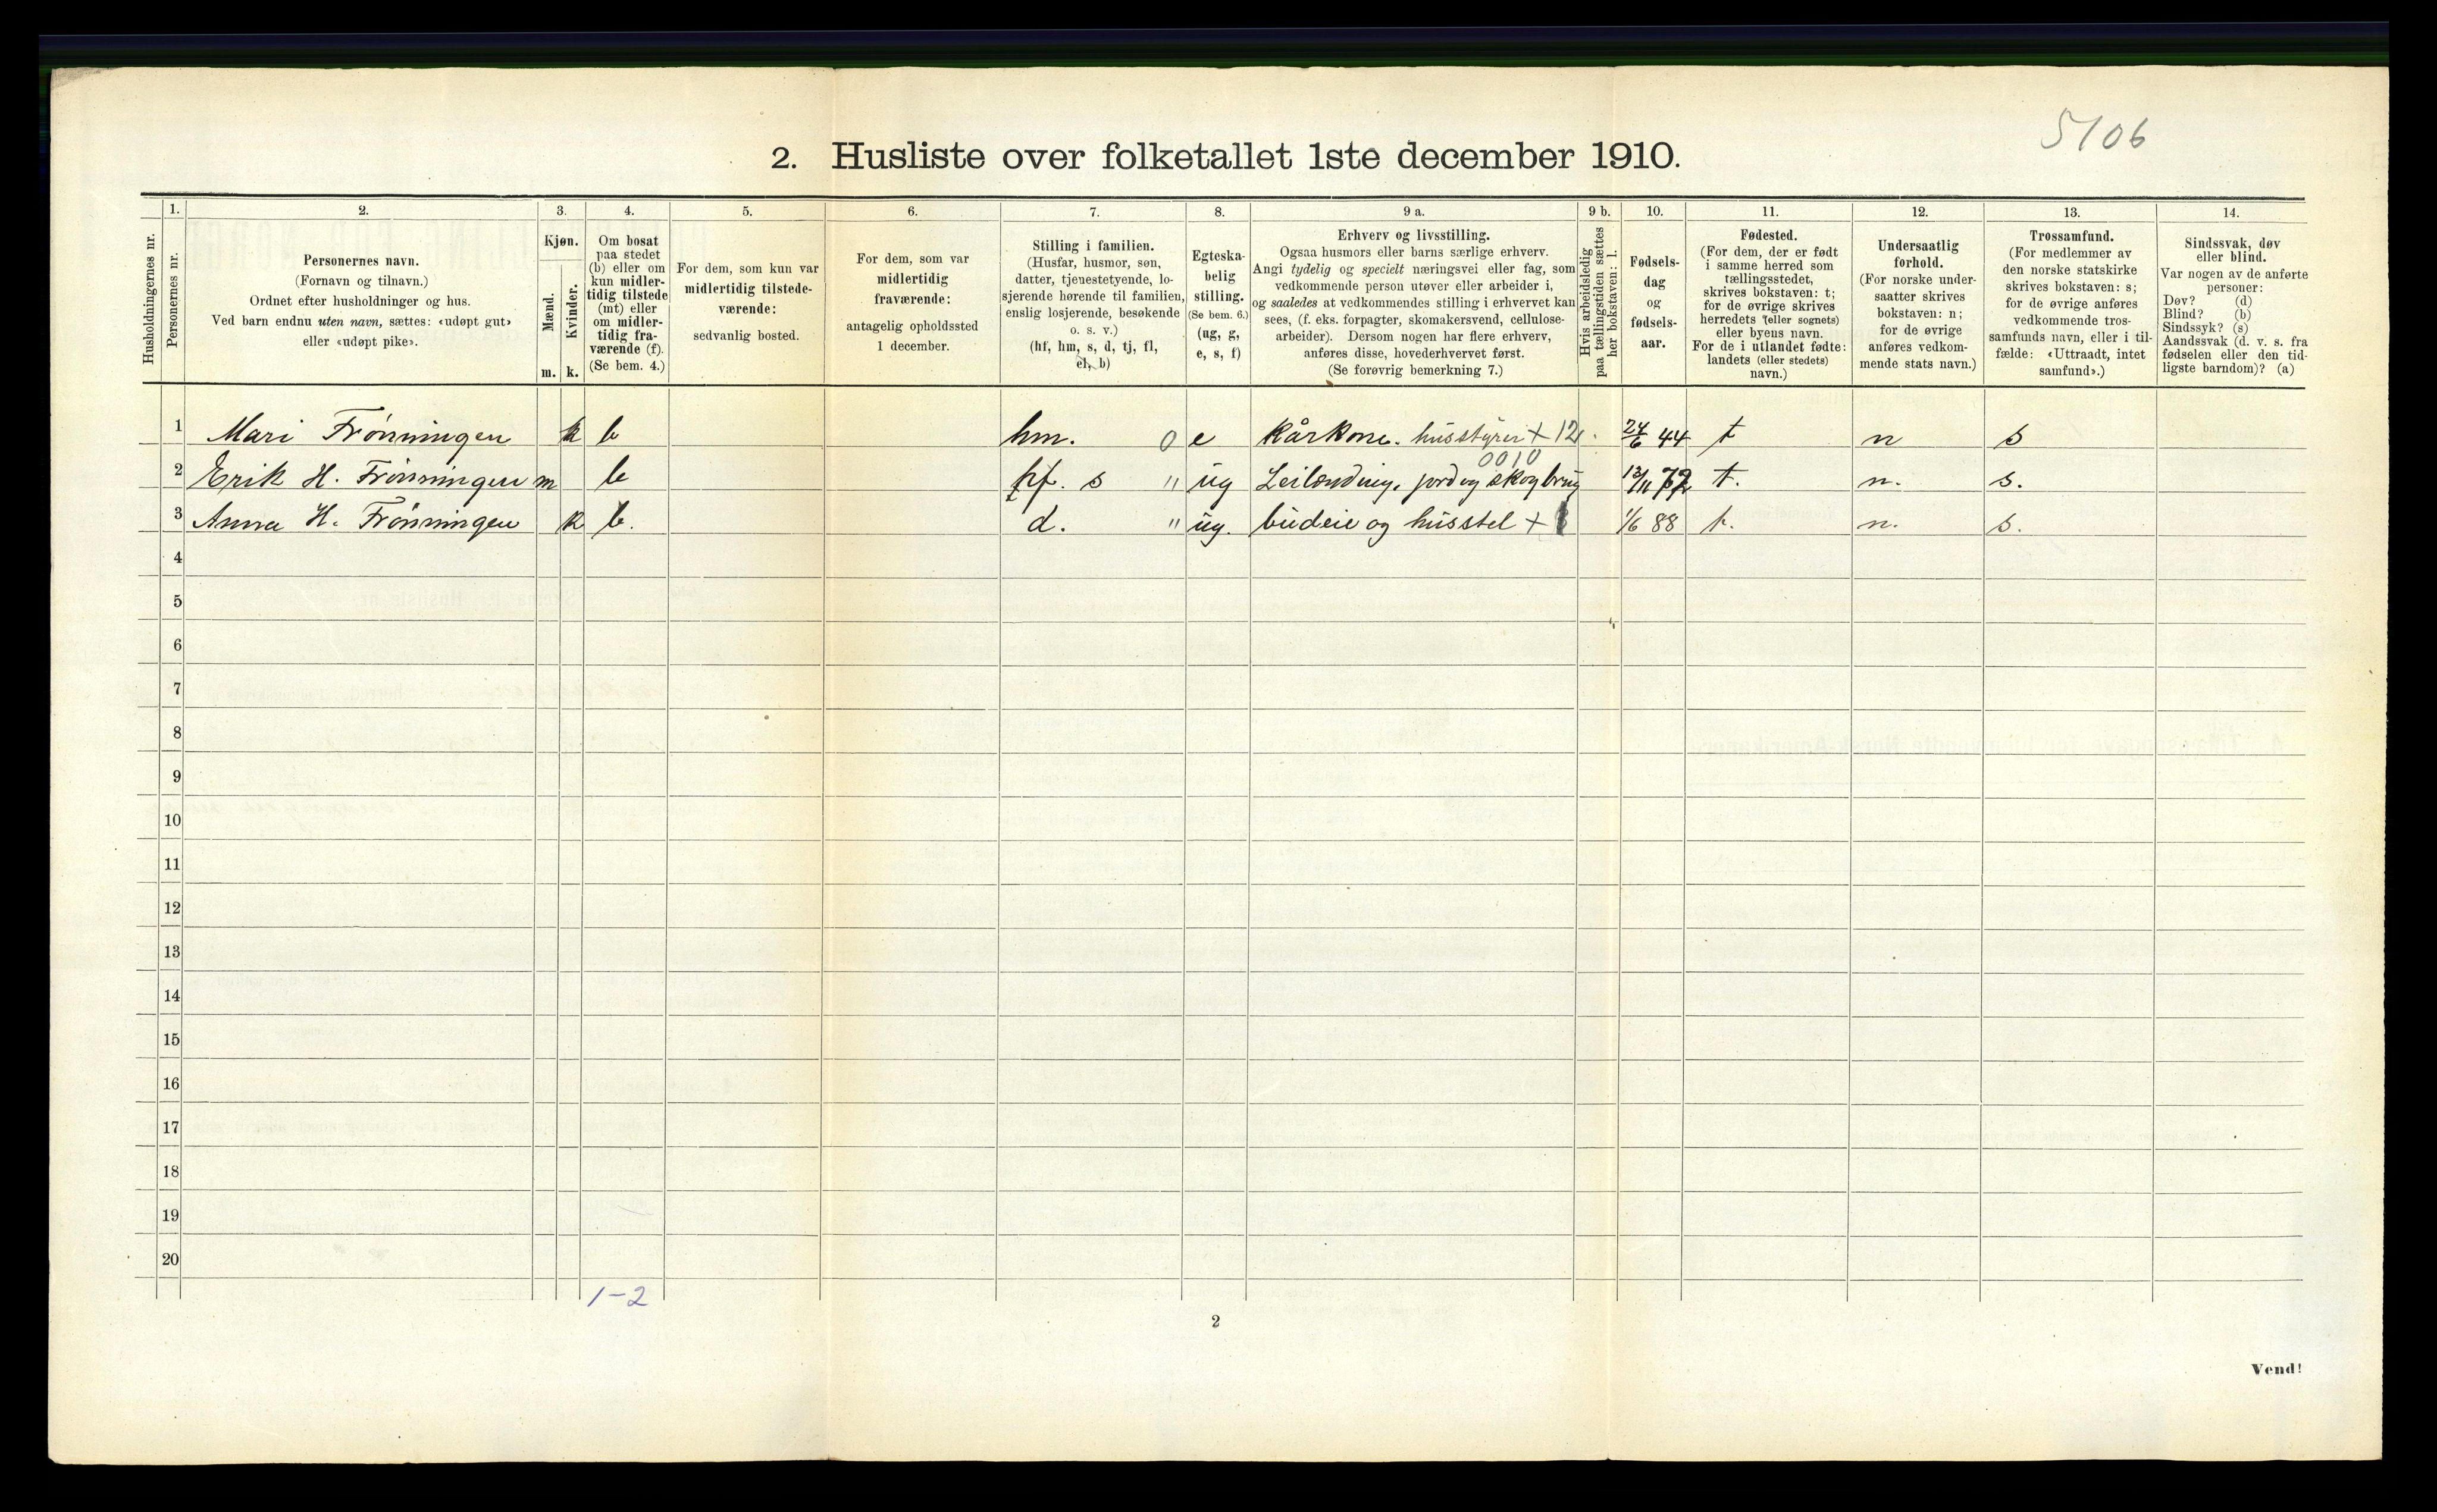 5106
2. Husliste over folketallet 1ste december 1910.
Husholdningernes nr.
1. Personernes nr.
2. Personernes navn.
(Fornavn og tilnavn.)
Ordnet efter husholdninger og hus.
Ved barn endnu uten navn, sættes: «udøpt gut»
eller «udøpt pike».
3. Kjøn.
Mænd. m.
Kvinder. k.
4. Om bosat
paa stedet
(b) eller om
kun midler-
tidig tilstede
(mt) eller
om midler-
tidig fra-
værende (f).
(Se bem. 4.)
5. For dem, som kun var
midlertidig tilstede-
værende:
sedvanlig bosted.
6. For dem, som var
midlertidig
fraværende:
antagelig opholdssted
1 december.
7. Stilling i familien.
(Husfar, husmor, søn,
datter, tjenestetyende, lo-
sjerende hørende til familien,
enslig losjerende, besøkende
o. s. v.)
(hf, hm, s, d, tj, fl,
el, b)
8. Egteska-
belig
stilling.
(Se bem. 6.)
(ug, g,
e, s, f)
9 a. Erhverv og livsstilling.
Ogsaa husmors eller barns særlige erhverv.
Angi tydelig og specielt næringsvei eller fag, som
vedkommende person utøver eller arbeider i,
og saaledes at vedkommendes stilling i erhvervet kan
sees, (f. eks. forpagter, skomakersvend, cellulose-
arbeider). Dersom nogen har flere erhverv,
anføres disse, hovederhvervet først.
(Se forøvrig bemerkning 7.)
9 b. Hvis arbeidsledig
paa tællingstiden sættes
her bokstaven: l.
10. Fødsels-
dag
og
fødsels-
aar.
11. Fødested.
(For dem, der er født
i samme herred som
tællingsstedet,
skrives bokstaven: t;
for de øvrige skrives
herredets (eller sognets)
eller byens navn.
For de i utlandet fødte:
landets (eller stedets)
navn.)
12. Undersaatlig
forhold.
(For norske under-
saatter skrives
bokstaven: n;
for de øvrige
anføres vedkom-
mende stats navn.)
13. Trossamfund.
(For medlemmer av
den norske statskirke
skrives bokstaven: s;
for de øvrige anføres
vedkommende tros-
samfunds navn, eller i til-
fælde: «Uttraadt, intet
samfund».)
14. Sindssvak, døv
eller blind.
Var nogen av de anførte
personer:
Døv? (d)
Blind? (b)
Sindssyk? (s)
Aandssvak (d. v. s. fra
fødselen eller den tid-
ligste barndom)? (a)
1 Mari Frønningen k b hm. 0 e Kårkone. husstyrer + 12 24/6 44 t n s
0010
2 Erik H. Frønningen m b hf. s " ug Leilænding, jord og skogbrug 13/11 72 t. n. s.
3 Anna H. Frønningen k b. d. " ug. budeie og husstel + 1/6 88 t. n. s.
4
5
6
7
8
9
10
11
12
13
14
15
16
17
18
19
20
1-2
2
Vend!